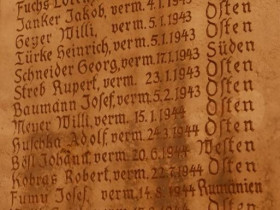 Janker Jakob, verm. 4.1.1943 Osten
Geyer Willi, verm. 5.1.1943 Osten
Türke Heinrich, verm. 5.1.1943 Süden
Schneider Georg, verm. 17.1.1943 Osten
Streb Rupert, verm. 23.1.1943 Osten
Baumann Josef, verm. 5.2.1943 Osten
Meyer Willi, verm. 15.1.1944 Osten
Buschka Adolf, verm. 24.3.1944 Osten
Bösl Johann, verm. 20.6.1944 Westen
Kobras Robert, verm. 22.7.1944 Osten
Fumy Josef, verm. 14.8.1944 Rumänien